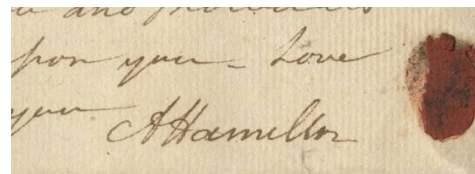 and
upon you – Love
you AHamilton